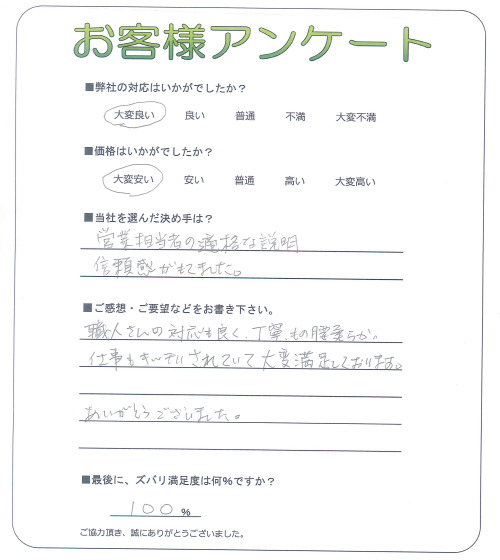 お客様アンケート
■弊社の対応はいかがでしたか？
大変良い 良い 普通 不満 大変不満
■価格はいかがでしたか？
大変安い 安い 普通 高い 大変高い
■当社を選んだ決め手は？
営業担当者の適格な説明
信頼感がもてました。
■ご感想・ご要望などをお書き下さい。
職人さんの対応も良く、丁寧、もの腰柔らか。
仕事もキッチリされていて大変満足しております。
ありがとうございました。
■最後に、ズバリ満足度は何％ですか？
100 ％
ご協力頂き、誠にありがとうございました。